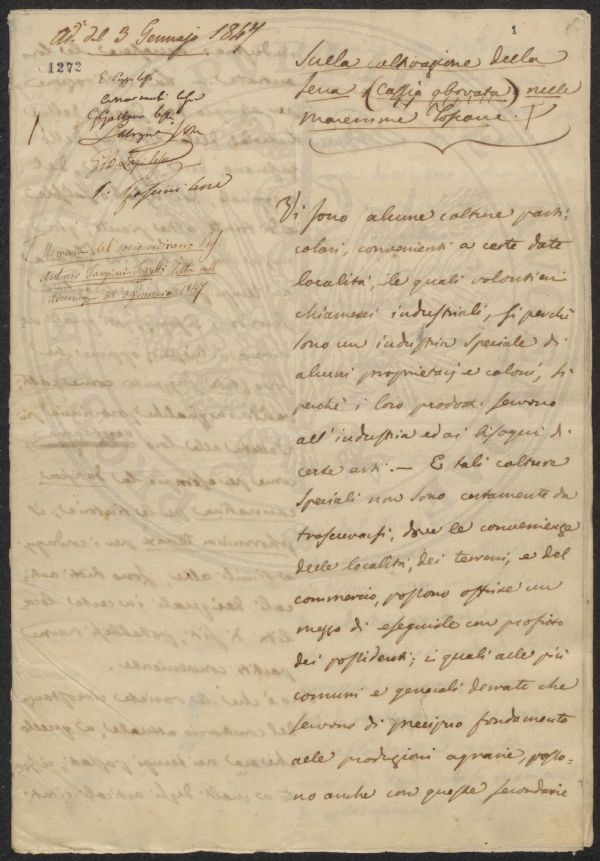 Ad.ª del 3 Gennajo 1847
1
1272
Sulla coltivazione della
Sena (Cassia obovata) nelle
maremme Toscane.
E Poggi
Memoria del socio ordinario Sig.
Antonio Targioni-Tozzetti letta nell'
adunanza del 3 Gennaio 1847
Vi sono alcune colture parti-
colari, convenienti a certe date
località, le quali volontieri
chiamerei industriali, sì perchè
sono un industria speciale di
alcuni proprietarj e coloni, sì
perchè i loro prodotti servono
all'industria ed ai bisogni di
certe arti. — E tali colture
speciali non sono certamente da
trascurarsi, dove le convenienze
delle località, dei terreni, e del
commercio, possono offrire un
mezzo di eseguirle con profitto
dei possidenti; i quali alle più
comuni e generali derrate che
servono di precipuo fondamento
alle produzioni agrarie, posso-
no anche con queste secondarie